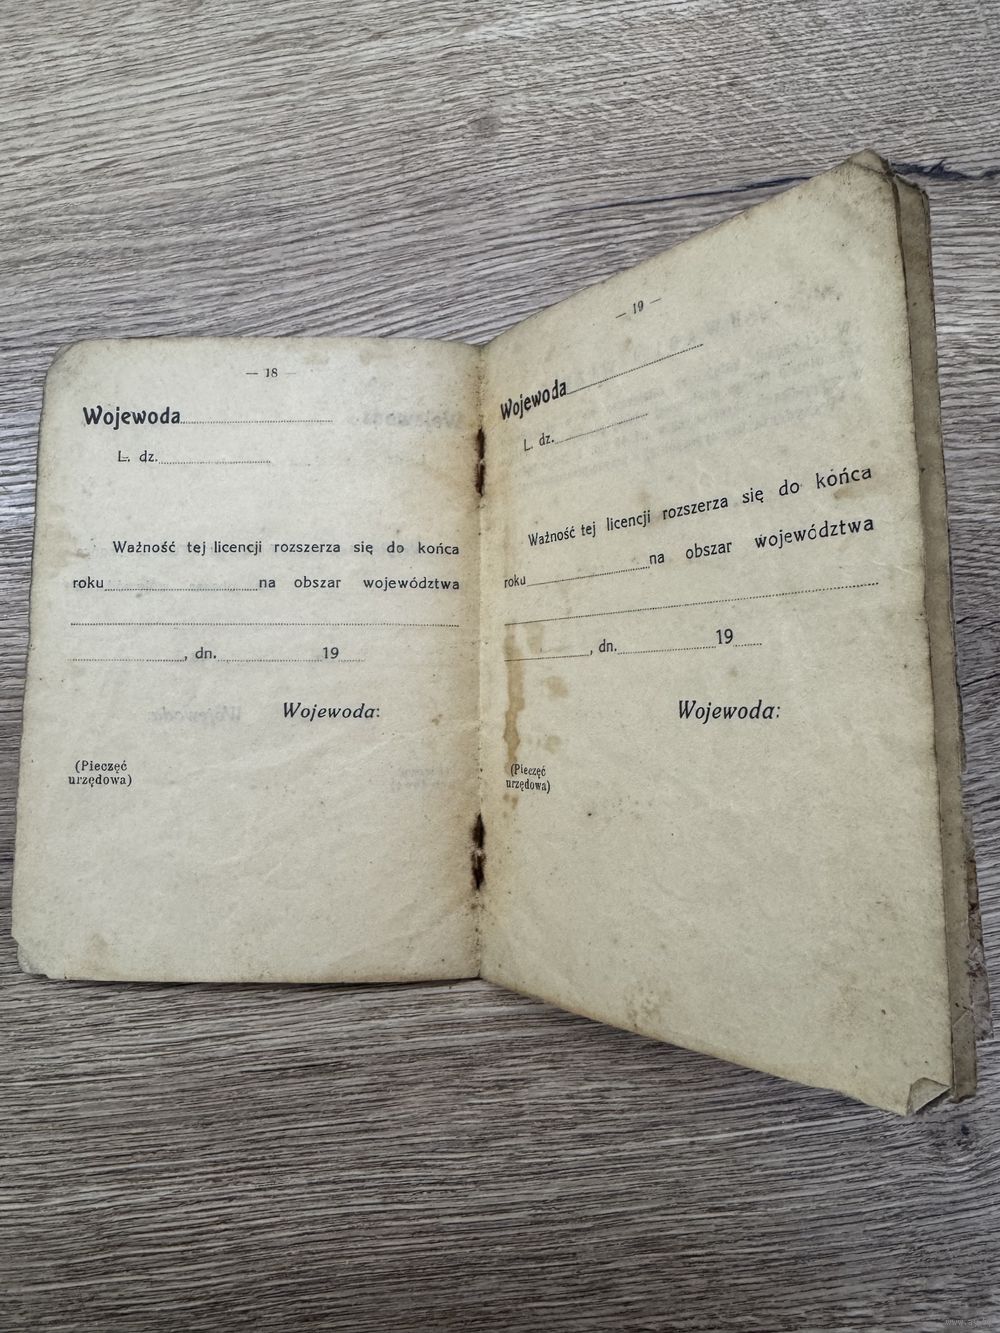 — 18 —
Wojewoda
L. dz.
Ważność tej licencji rozszerza się do końca
roku na obszar województwa
, dn. 19
Wojewoda:
(Pieczęć
urzędowa)
— 19 —
Wojewoda
L. dz.
Ważność tej licencji rozszerza się do końca
roku na obszar województwa
, dn. 19
Wojewoda:
(Pieczęć
urzędowa)